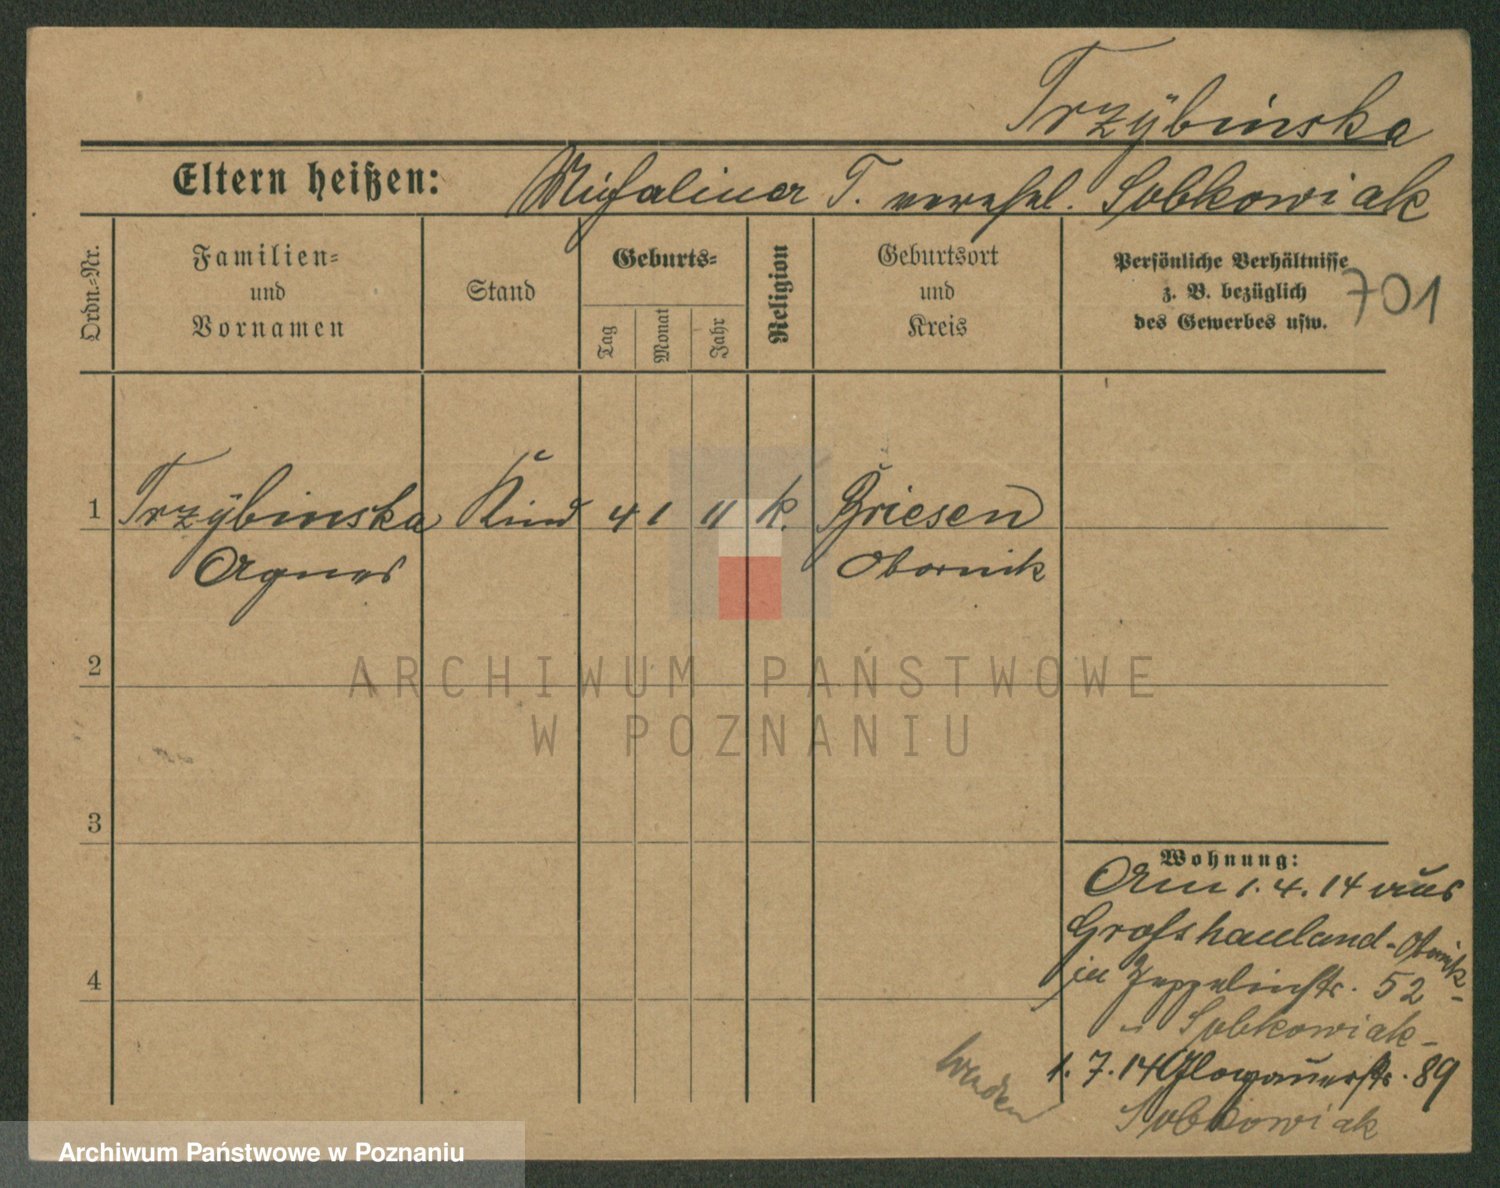 Trzÿbinska
Eltern heißen: Michalina T. verehel. Sobkowiak
Ordn.-Nr.
Familien-
und
Vornamen
Stand
Geburts-
Tag
Monat
Jahr
Religion
Geburtsort
und
Kreis
Persönliche Verhältnisse
z. B. bezüglich
des Gewerbes usw.
701
1 Trzÿbinska Kind 4 1 11 k. Briesen
Agnes Obornik
ARCHIWUM PAŃSTWOWE
W POZNANIU
2
3
4
Wohnung:
Am 1.4.14 aus
Grosshauland-Obornik
in Zeppelinstr. 52
Sobkowiak-
1.7.14 Glogauerstr. 89
Sobkowiak
wenden
Archiwum Państwowe w Poznaniu